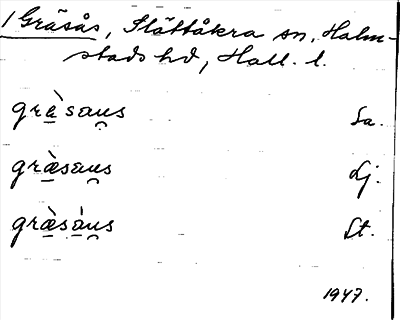 1 Gräsås, Slättåkra sn, Halm-
stads hd, Hall. l.
græ̀sau̯s Sa.
græ̀sau̯s Lj.
græ̀sàu̯s St.
1947.